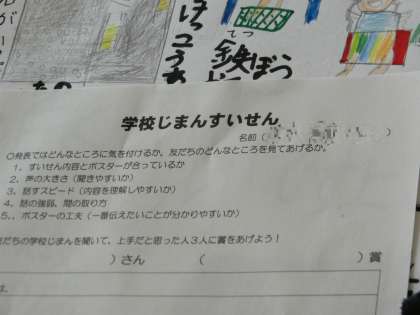 けっこうあ
てつ
鉄ぼう
学校じまんすいせん
名前（　　　）
○発表ではどんなところに気を付けるか。友だちのどんなところを見てあげるか。
１．すいせん内容とポスターが合っているか
２．声の大きさ（聞きやすいか）
３．話すスピード（内容を理解しやすいか）
４．話の強弱、間の取り方
５．．ポスターの工夫（一番伝えたいことが分かりやすいか）
友だちの学校じまんを聞いて、上手だと思った人３人に賞をあげよう！
）さん　（　　　）賞